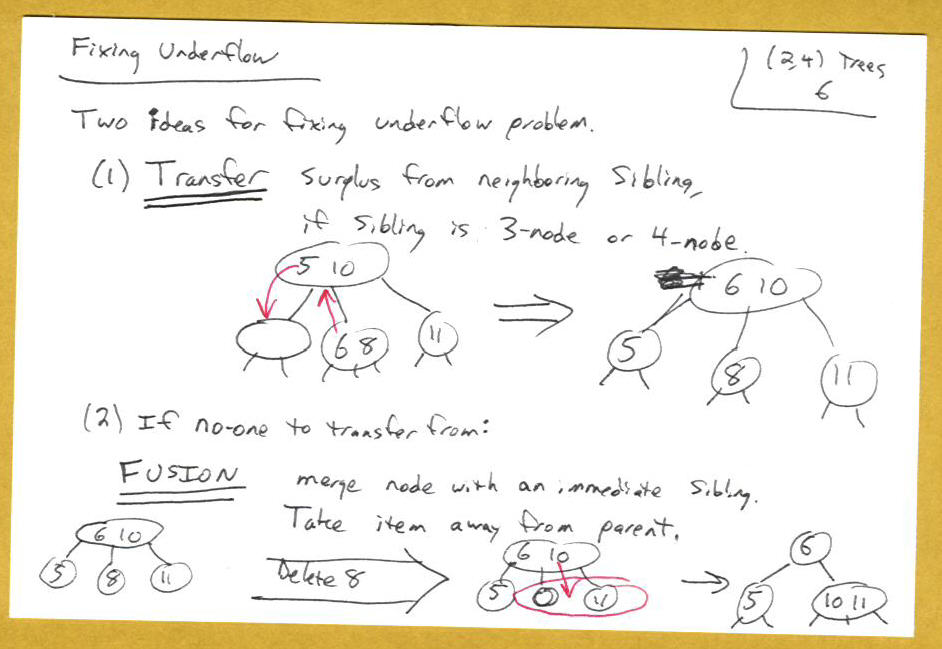 Fixing Underflow
(2,4) Trees
6
Two ideas for fixing underflow problem.
(1) Transfer surplus from neighboring sibling,
if sibling is 3-node or 4-node.
5 10
6 8
11
6 10
5
8
11
(2) If no-one to transfer from:
FUSION merge node with an immediate sibling.
Take item away from parent.
6 10
5 8 11
Delete 8
6 10
5 11
6
5 10 11